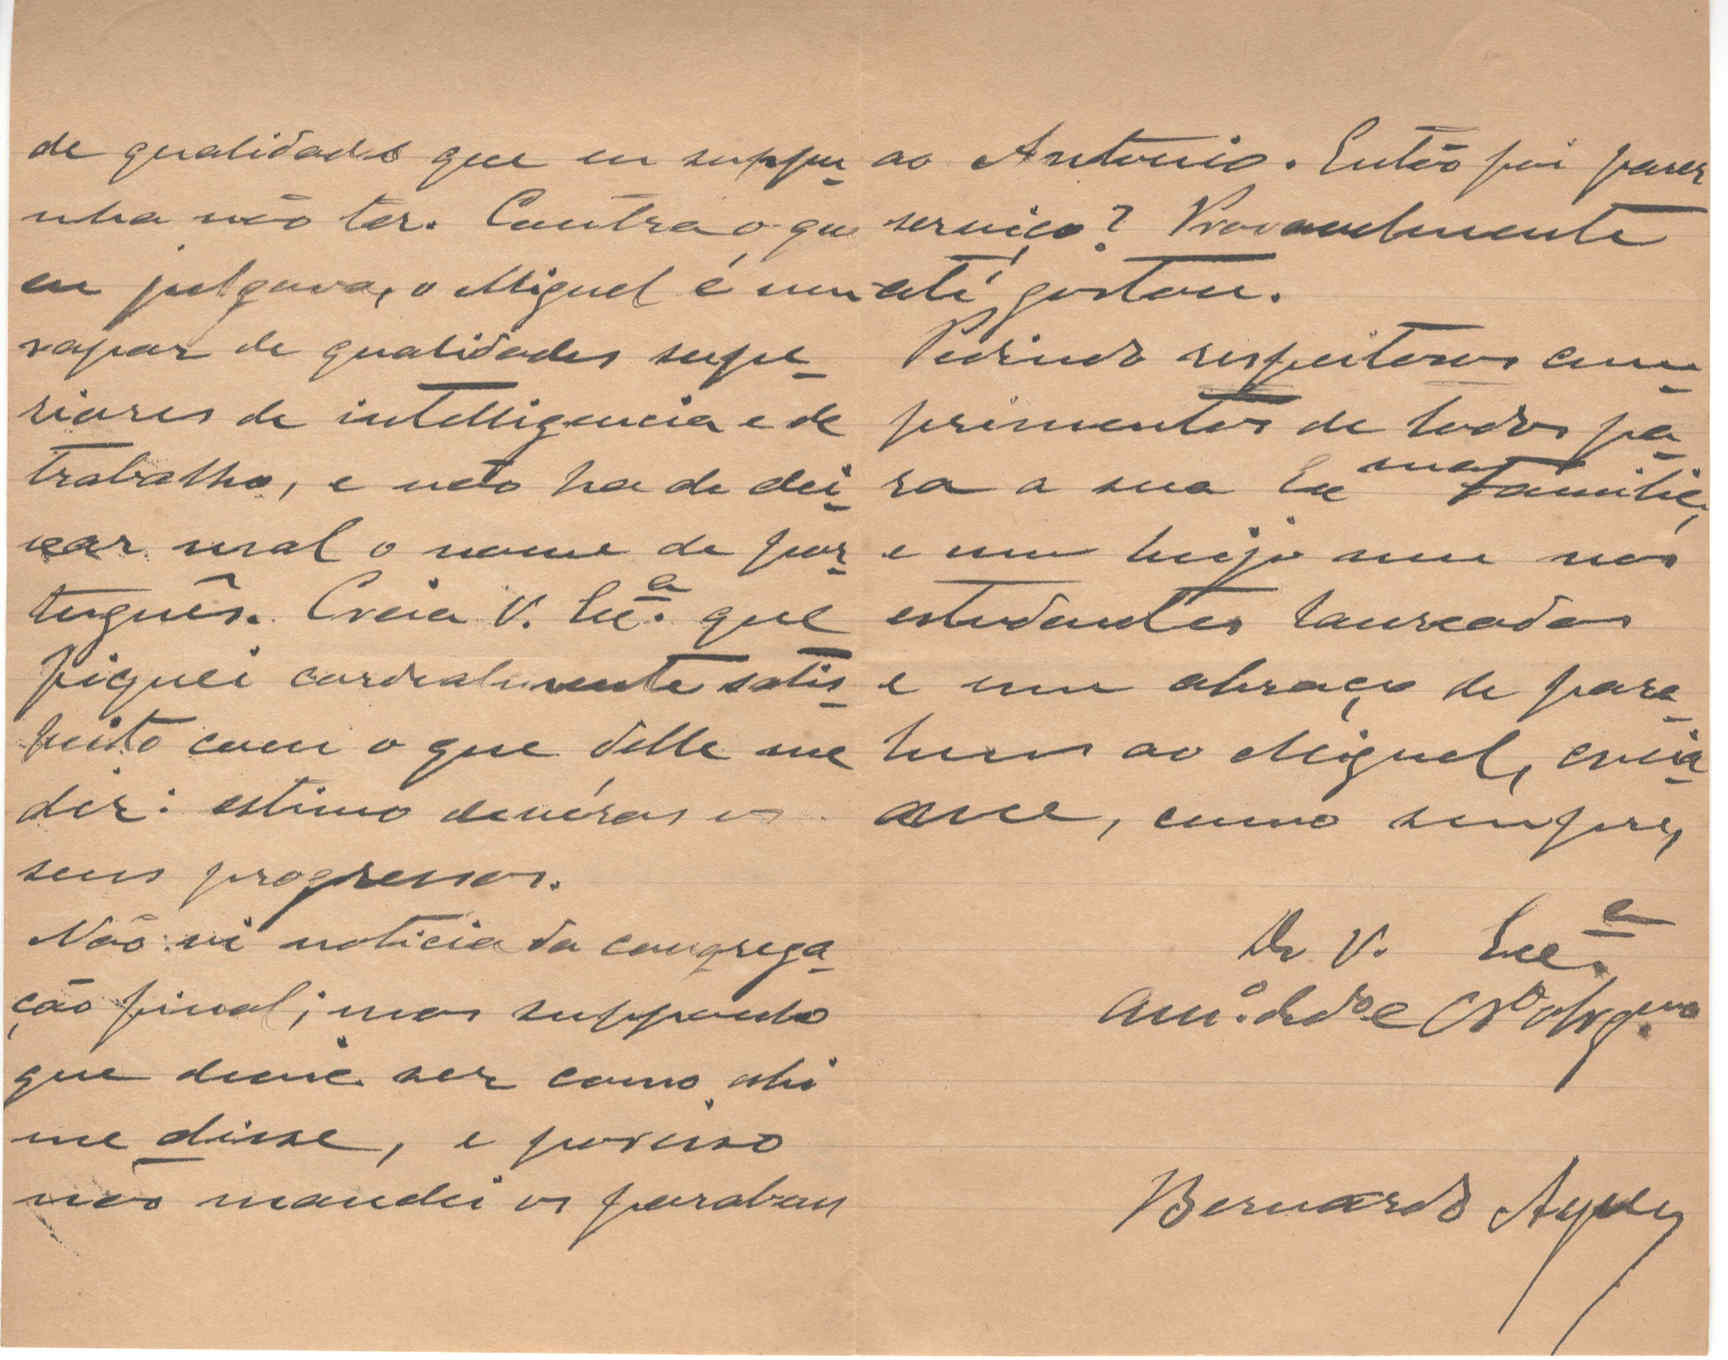 de qualidades que eu suppu-
nha não ter. Contra o que
eu julgava, o Miguel é um
rapaz de qualidades supe-
riores de intelligencia e de
trabalho, e não ha de dei-
xar mal o nome de por-
tuguês. Creia V. Exc.ª que
fiquei cordealmente satis-
feito com o que delle me
diz: estimo devéras os
seus progressos.
Não vi noticia da congrega-
ção final; mas supponho
que deve ser como ahi
me disse, e por isso
não mandei os parabens
ao Antonio. Então foi fazer
serviço? Provavelmente
até gostou.
Pedindo respeitosos cum-
primentos de todos pa-
ra a sua Exma familia,
e um beijo meu nos
estudantes laureados
e um abraço de para-
bens ao Miguel, creia-
me, como sempre,
De V. Exc.ª
Am.º ded.º e Cr.º obrg.mo
Bernardo Ayres